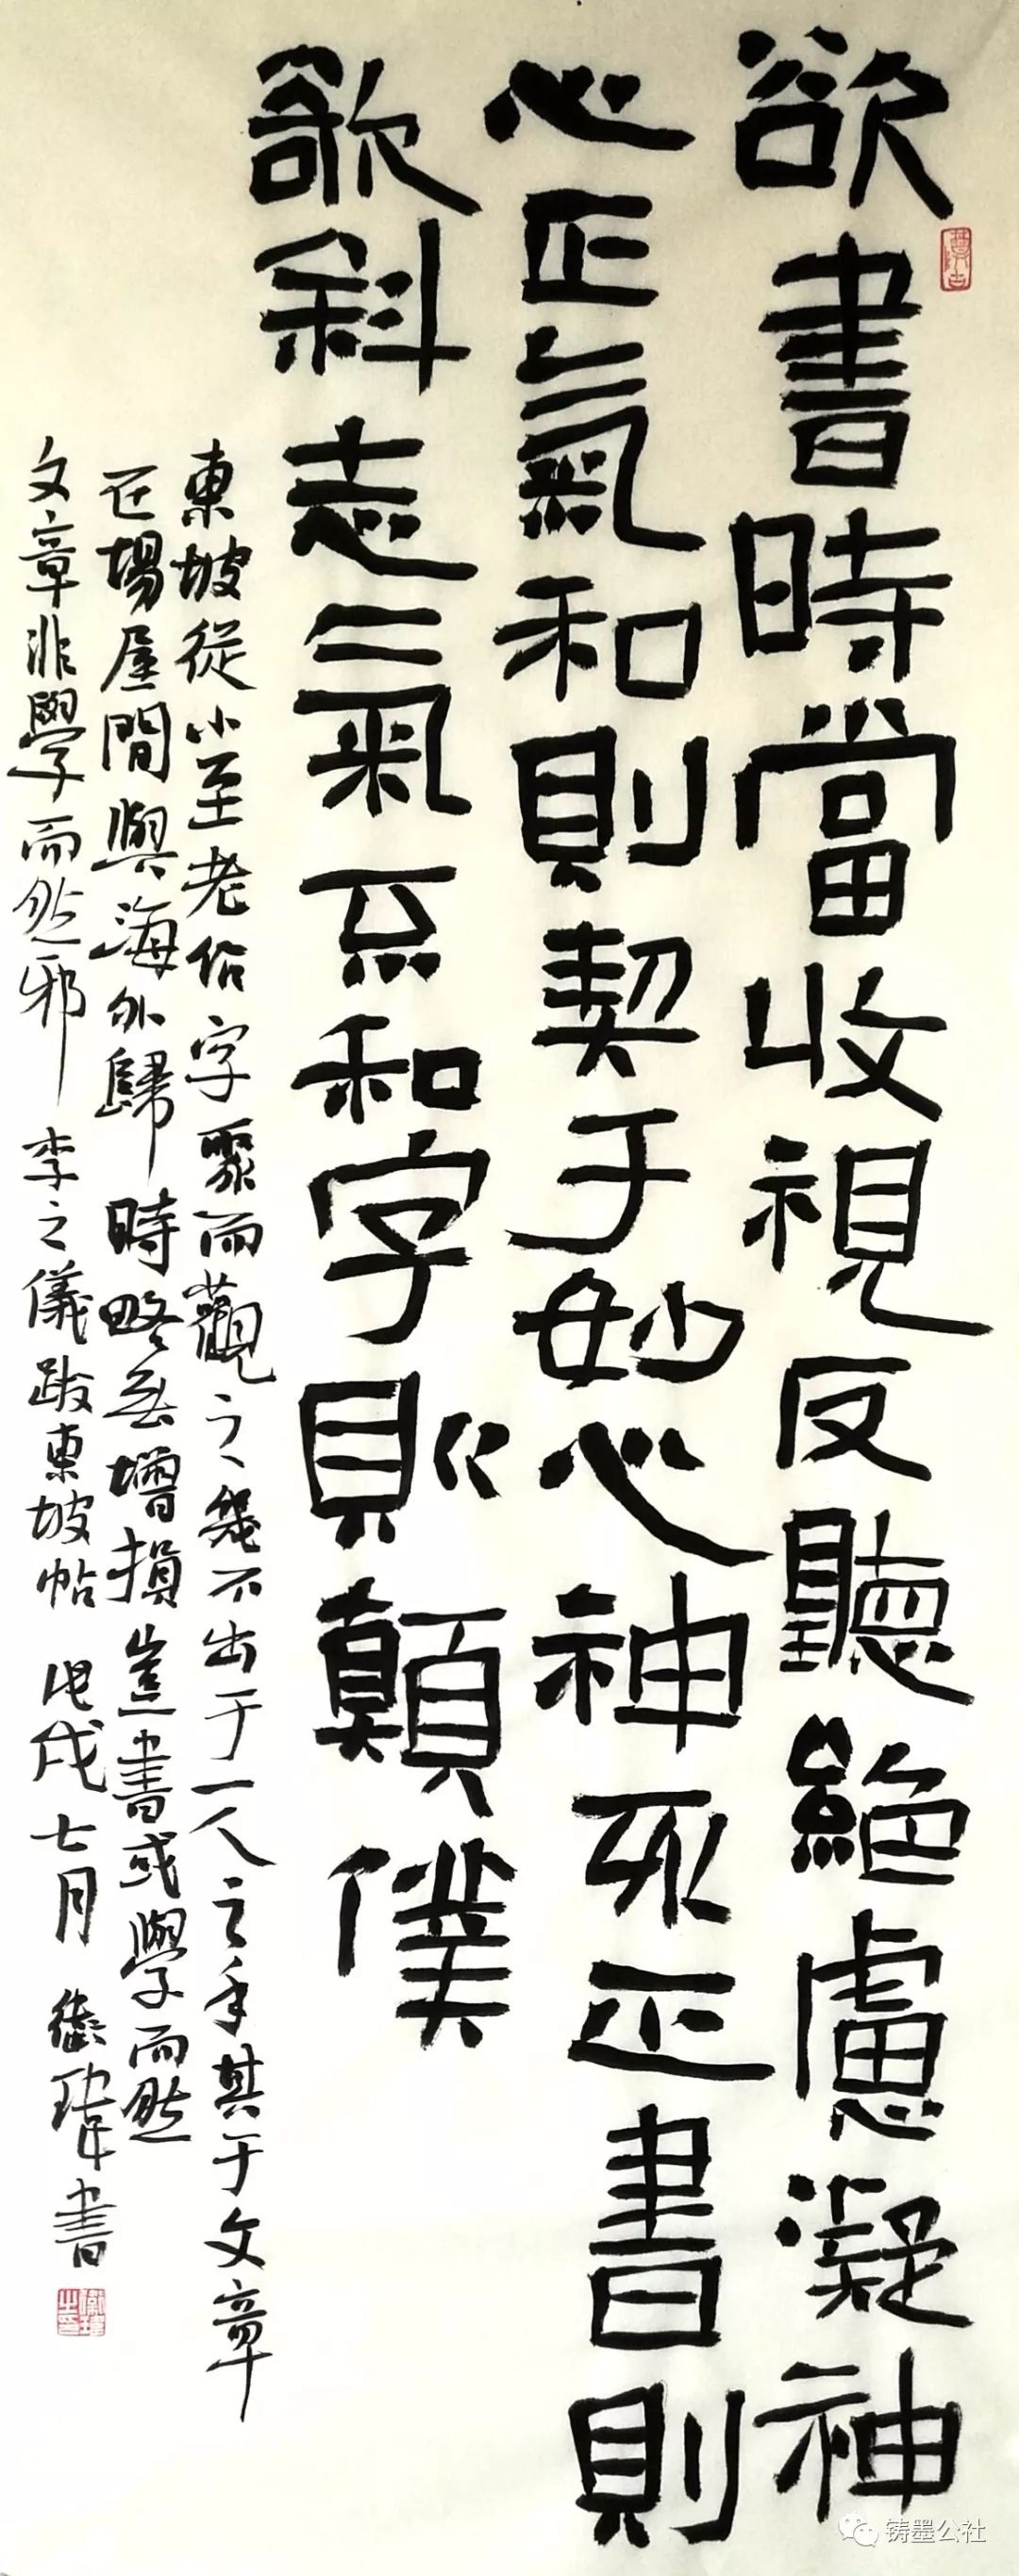 欲書時當收視反聽絕慮凝神
心正氣和則契于妙心神不正書則
欹斜志氣不和字則顛僕
東坡從小至老所作字聚而觀之幾不出于一人之手其于文章
在場屋間與海外歸時略無增損豈書或學而然
文章非學而然邪 李之儀跋東坡帖 戊戌七月 衛瑋書
铸墨公社